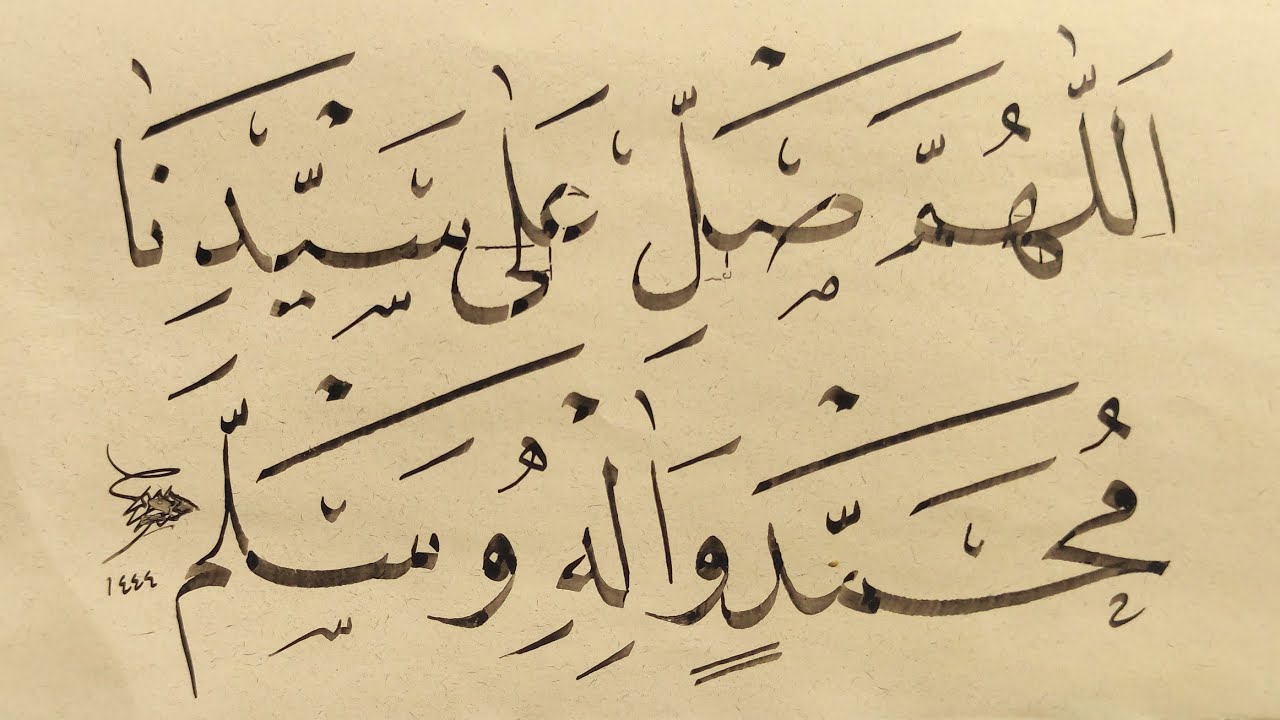 اَللّٰهُمَّ صَلِّ عَلٰى سَيِّدِنَا
مُحَمَّدٍ وَاٰلِهِ وَسَلِّمْ
١٤٤٤